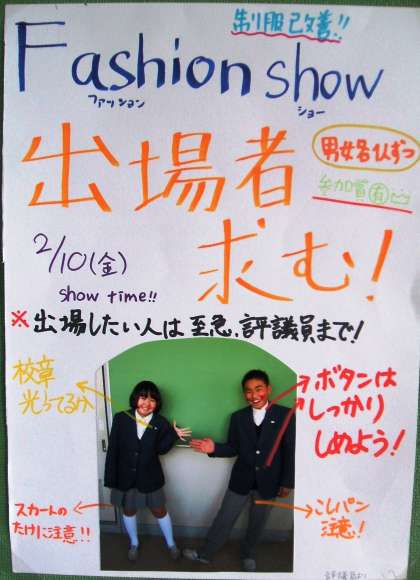 制服改善!!
Fashion show
ファッション ショー
出場者
男女各1人ずつ
参加賞有
求む!
2/10(金)
show time!!
※出場したい人は至急、評議員まで!
校章
光ってるか
ボタンは
しっかり
しめよう!
スカートの
たけに注意!!
こしパン
注意!